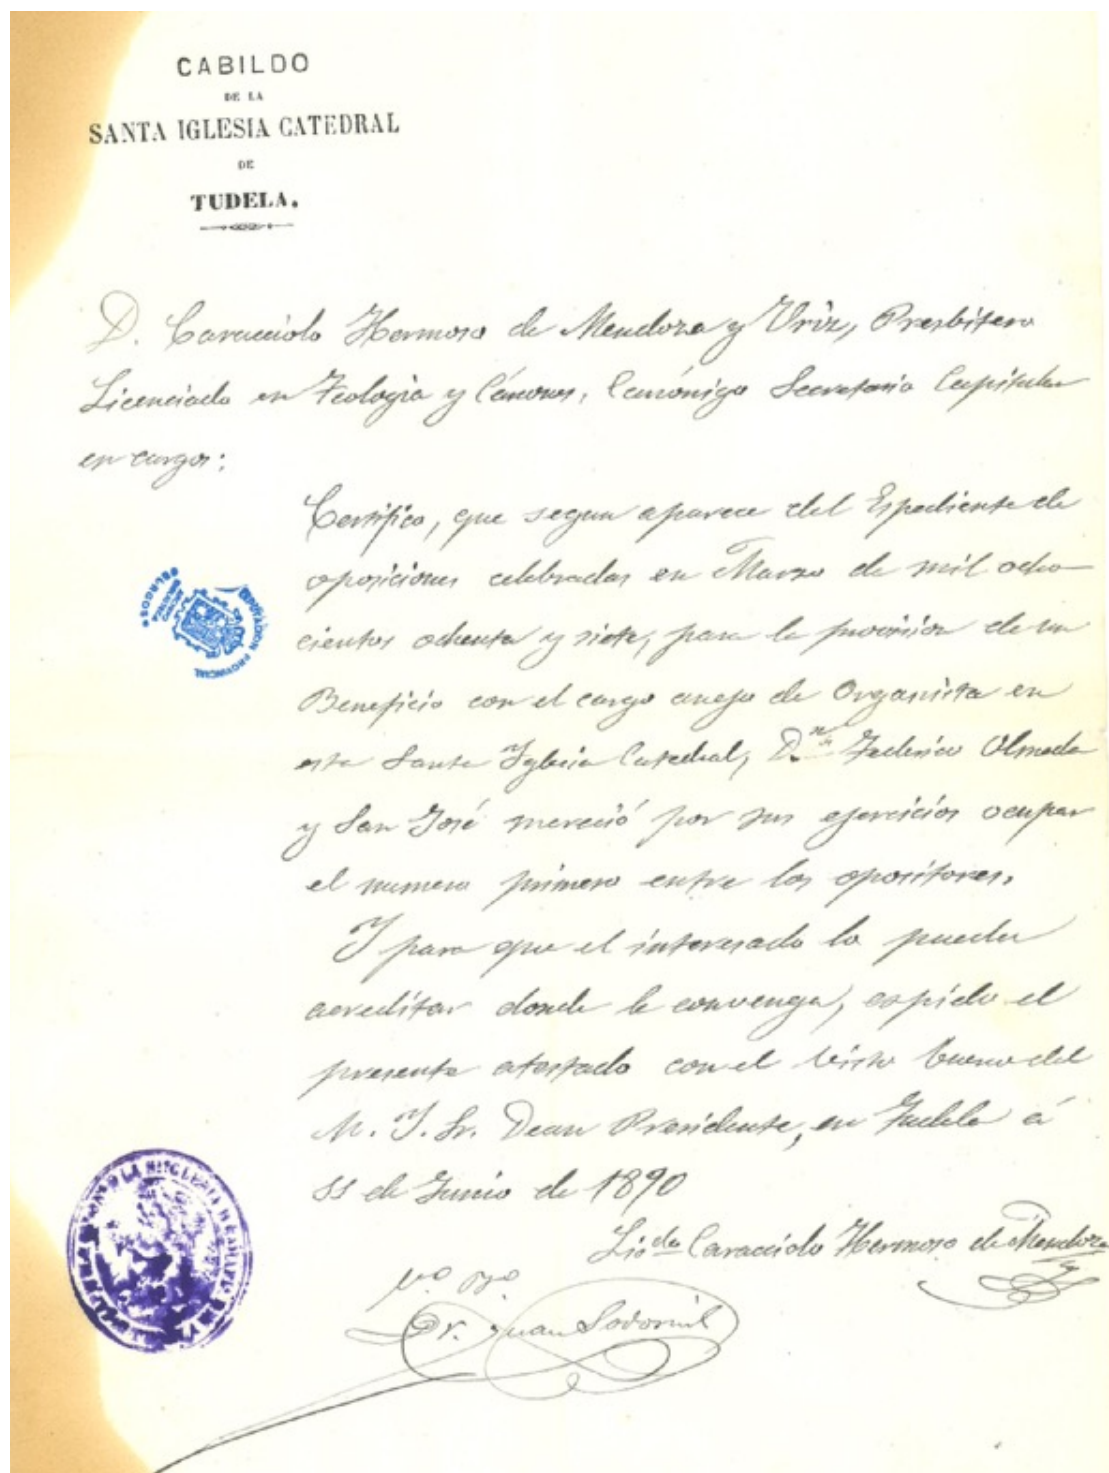 CABILDO
DE LA
SANTA IGLESIA CATEDRAL
DE
TUDELA.
D. Caracciolo Hermoso de Mendoza y Uriz, Presbitero
Licenciado en Teologia y Cánones, Canónigo Secretario Capitular
en cargos:
Certifico, que segun aparece del Espediente de
oposiciones celebradas en Marzo de mil ocho-
cientos ochenta y siete, para la provision de un
Beneficio con el cargo anejo de Organista en
esta Santa Iglesia Catedral, D.n Federico Olmeda
y San José mereció por sus ejercicios ocupar
el numero primero entre los opositores.
Y para que el interesado lo pueda
acreditar donde le convenga, espido el
presente atestado con el visto bueno del
M. I. Sr. Dean Presidente, en Tudela á
11 de Junio de 1890
Licdo Caracciolo Hermoso de Mendoza
Vº Bº
Dr. Juan
DIPUTACION PROVINCIAL